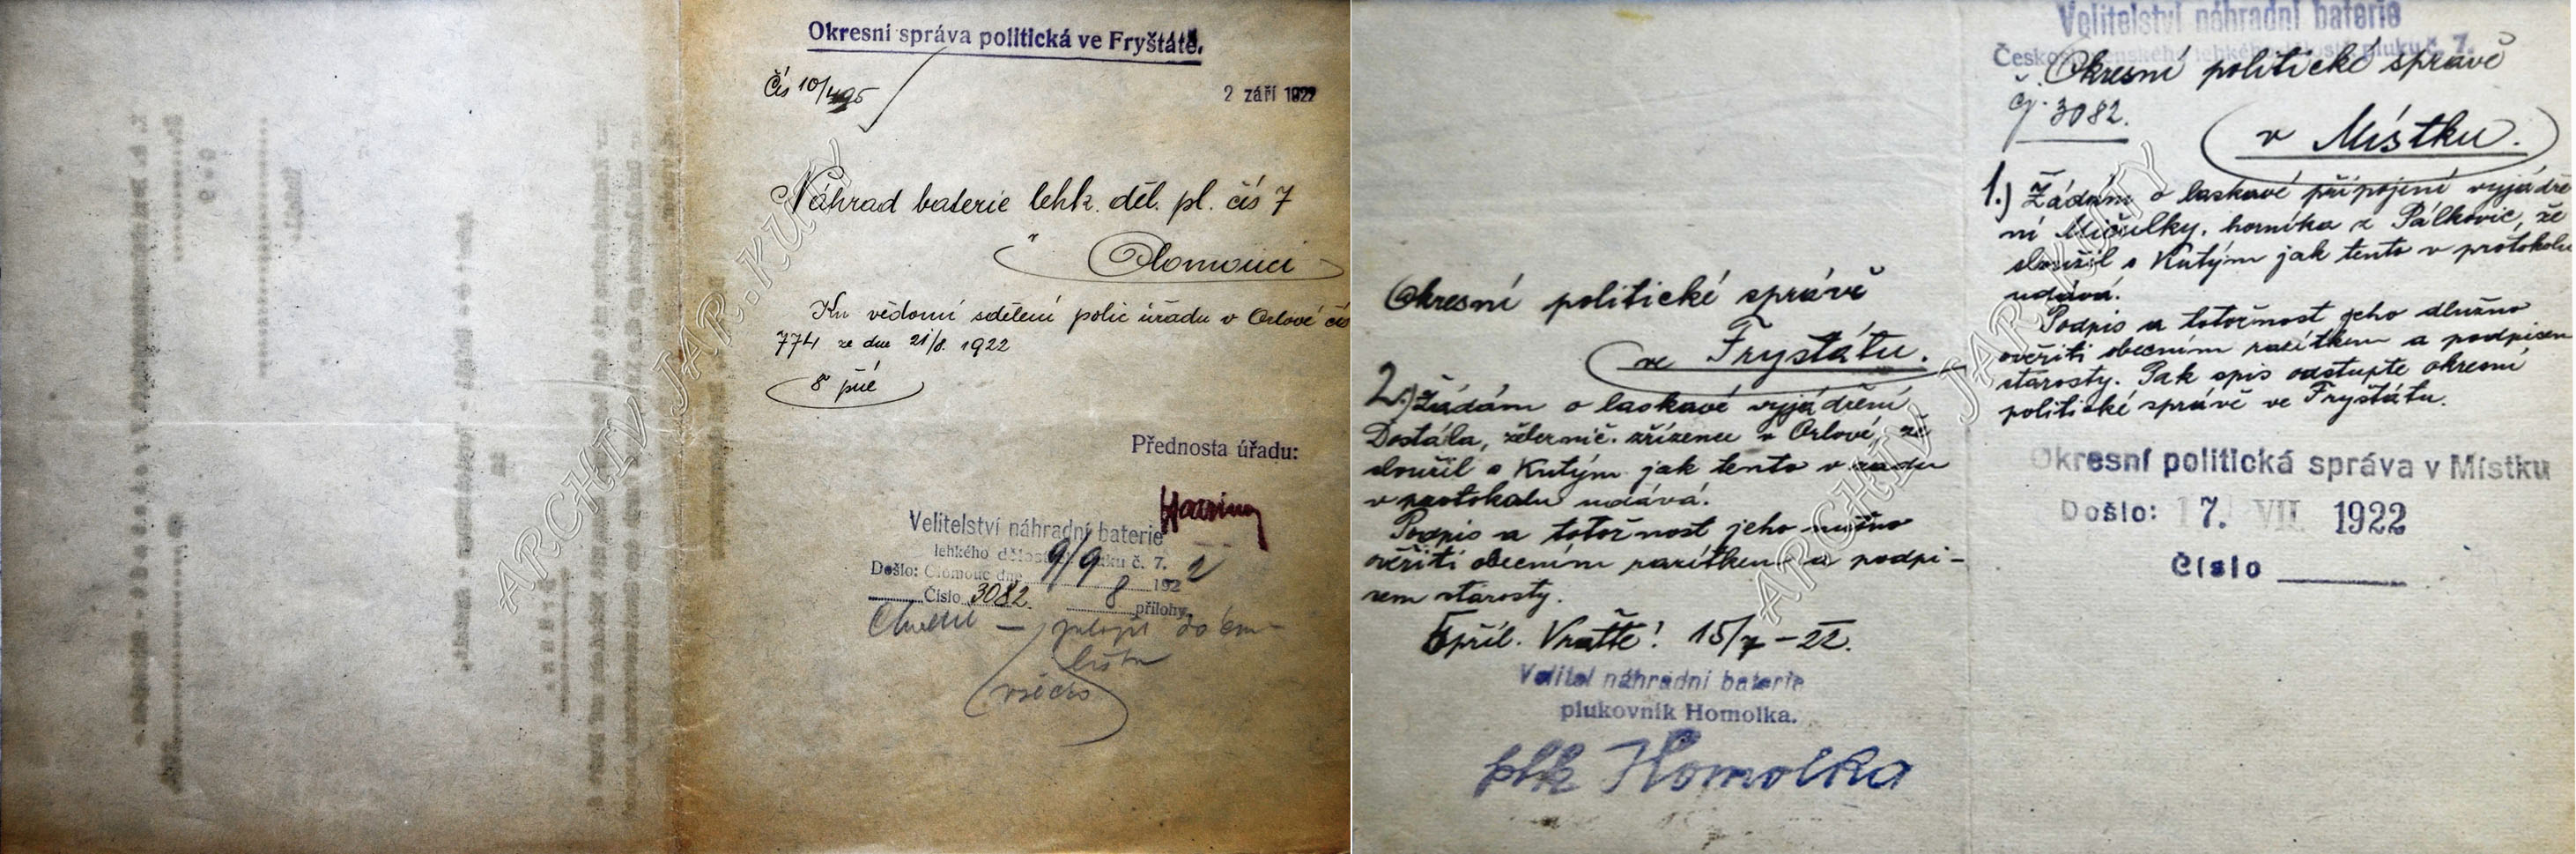 Okresní správa politická ve Fryštátě.
Čís 10/495
2 září 1922
Náhrad baterie lehk. děl. pl. čís 7
v Olomouci
Ku vědomí sdělení polic úřadu v Orlové čís
774 ze dne 21/8. 1922
8 příl
Přednosta úřadu:
Velitelství náhradní baterie
lehkého děl pluku č. 7.
Došlo: Olomouc dne 9/9 1922
Číslo 3082. 8 přílohy
do
všecko
ARCHIV JAR.KUTÝ
Velitelství náhradní baterie
Československého lehkého děl pluku č. 7.
Okresní politické správě
Čj. 3082.
v Místku.
1.) Žádám o laskavé připojení vyjádře
ní Mičulky, horníka z Pálkovic, že
sloužil s Kutým jak tento v protokolu
udává.
Podpis a totožnost jeho dlužno
ověřiti obecním razítkem a podpisem
starosty. Pak spis odstupte okresní
politické správě ve Fryštátu.
Okresní politická správa v Místku
Došlo: 17. VII 1922
Číslo
Okresní politické správě
ve Fryštátu.
2.) Žádám o laskavé vyjádření
Dostála, železnič. zřízence v Orlové, že
sloužil s Kutým jak tento v
v protokolu udává.
Podpis a totožnost jeho nutno
ověřiti obecním razítkem a podpi-
sem starosty.
5 příl. Vraťte! 15/7 - 22.
Velitel náhradní baterie
plukovník Homolka.
plk Homolka
ARCHIV JAR.KUTÝ